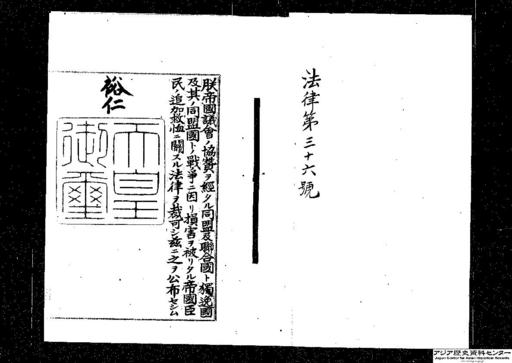 法律第三十六號
朕帝國議會ノ協賛ヲ經タル同盟及聯合國ト獨逸國
及其ノ同盟國トノ戰爭ニ因リ損害ヲ被リタル帝國臣
民ノ追加救恤ニ關スル法律ヲ裁可シ茲ニ之ヲ公布セシム
裕仁
天皇
御璽
アジア歴史資料センター
Japan Center for Asian Historical Records